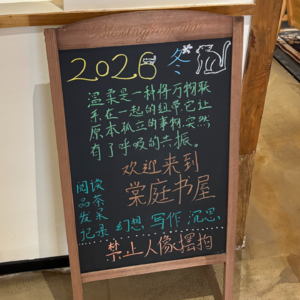 2026 冬
温柔是一种将万物联
系在一起的纽带,它让
原本孤立的事物突然
有了呼吸的共振。
欢迎来到
棠庭书屋
阅读
品茶
发呆
记录 幻想 写作 沉思
禁止人像摆拍